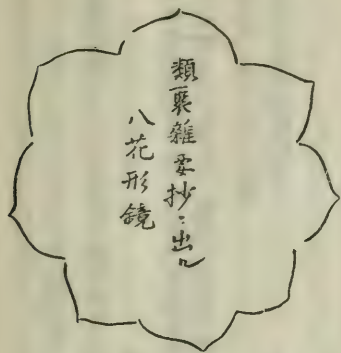 類聚雜要抄ニ出ル
八花形鏡